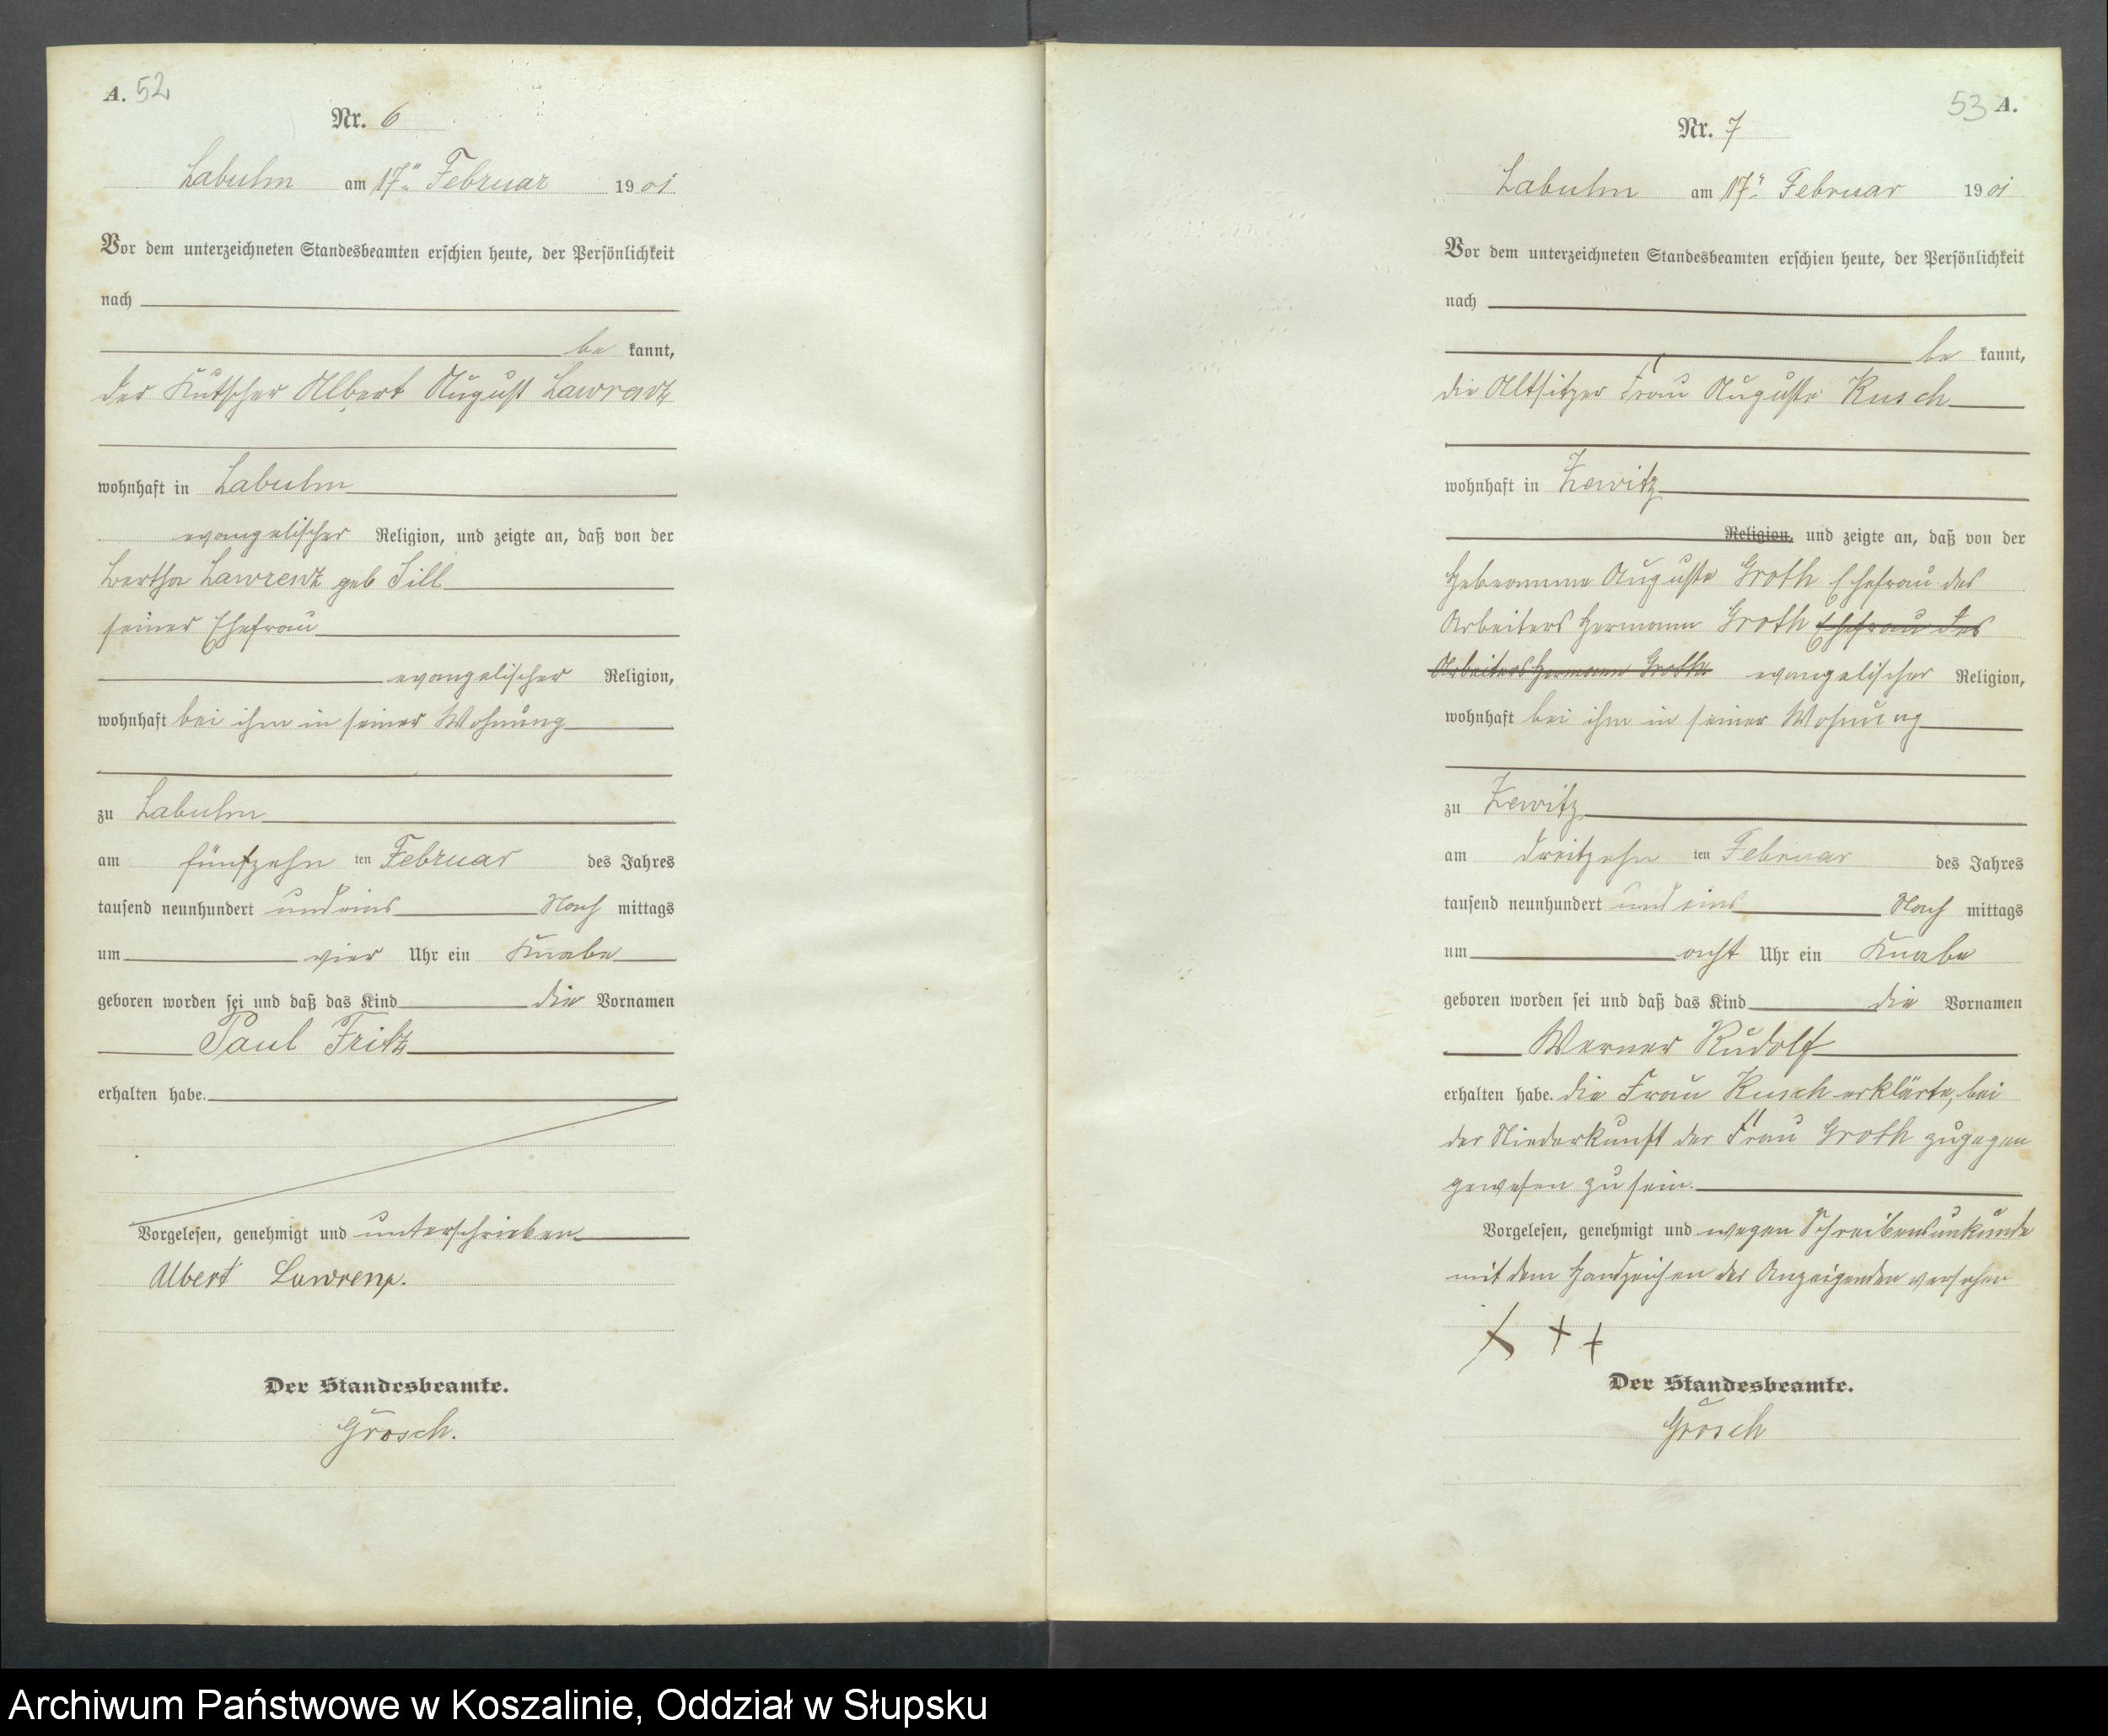 A. 52
Nr. 6
Labuhn am 17ten Februar 1901
Vor dem unterzeichneten Standesbeamten erschien heute, der Persönlichkeit
nach
be kannt,
der Kutscher Albert August Lawrenz
wohnhaft in Labuhn
evangelischer Religion, und zeigte an, daß von der
Bertha Lawrenz geb Sill
seiner Ehefrau
evangelischer Religion,
wohnhaft bei ihm in seiner Wohnung
zu Labuhn
am fünfzehn ten Februar des Jahres
tausend neunhundert und eins Nach mittags
um vier Uhr ein Knabe
geboren worden sei und daß das Kind die Vornamen
Paul Fritz
erhalten habe.
Vorgelesen, genehmigt und unterschrieben
Albert Lawrenz.
Der Standesbeamte.
Grosch.
53 A.
Nr. 7
Labuhn am 17ten Februar 1901
Vor dem unterzeichneten Standesbeamten erschien heute, der Persönlichkeit
nach
be kannt,
die Altsitzer Frau Auguste Kusch
wohnhaft in Zewitz
Religion, und zeigte an, daß von der
Hebeamme Auguste Groth Ehefrau des
Arbeiters Hermann Groth Ehefrau des
Arbeiters Hermann Groth evangelischer Religion,
wohnhaft bei ihm in seiner Wohnung
zu Zewitz
am dreitzehn ten Februar des Jahres
tausend neunhundert und eins Nach mittags
um acht Uhr ein Knabe
geboren worden sei und daß das Kind die Vornamen
Werner Rudolf
erhalten habe. die Frau Kusch erklärte, bei
der Niederkunft der Frau Groth zugegen
gewesen zu sein.
Vorgelesen, genehmigt und wegen Schreibensunkunde
mit dem Handzeichen der Anzeigenden versehen
+ + +
Der Standesbeamte.
Grosch
Archiwum Państwowe w Koszalinie, Oddział w Słupsku